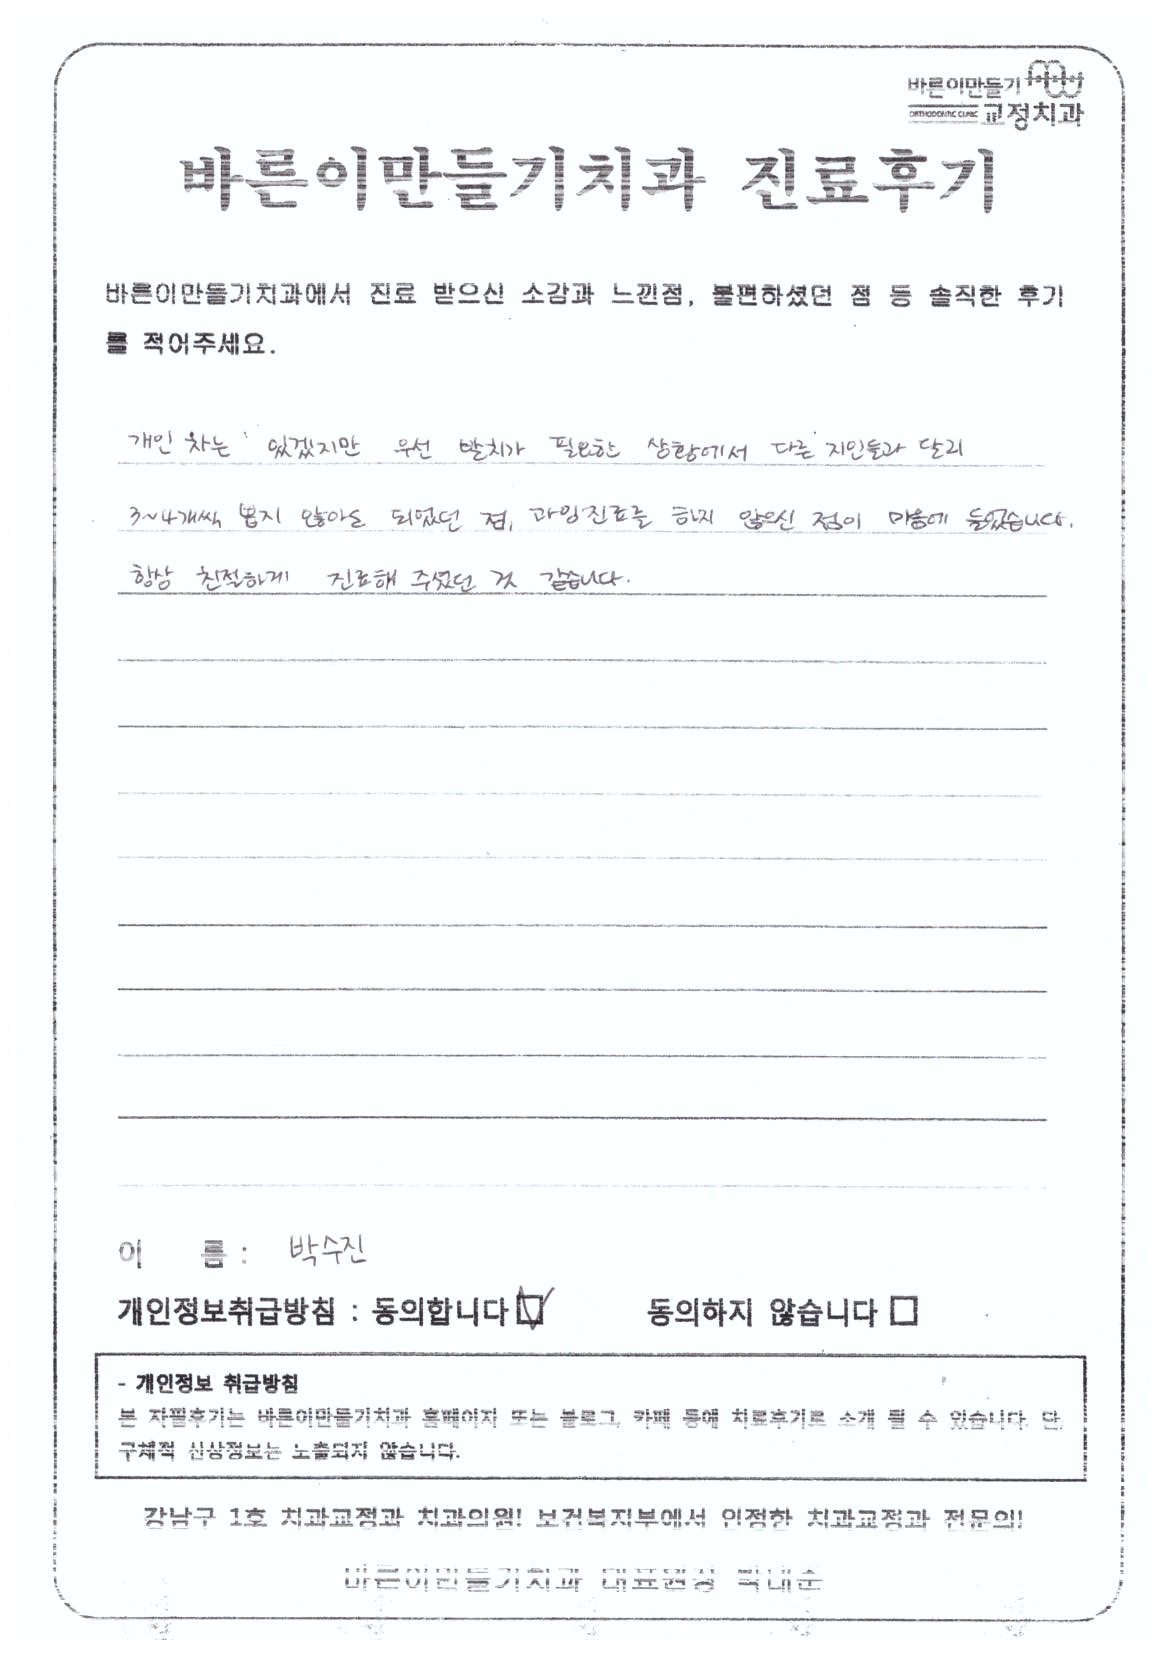 바른이만들기
ORTHODONTIC CLINIC 교정치과
바른이만들기치과 진료후기
바른이만들기치과에서 진료 받으신 소감과 느낀점, 불편하셨던 점 등 솔직한 후기
를 적어주세요.
개인 차는 있겠지만 우선 발치가 필요한 상황에서 다른 지인들과 달리
3~4개씩 뽑지 않아도 되었던 점, 과잉진료를 하지 않으신 점이 마음에 들었습니다.
항상 친절하게 진료해 주셨던 것 같습니다.
이 름 : 박수진
개인정보취급방침 : 동의합니다 ☑ 동의하지 않습니다 □
- 개인정보 취급방침
본 자필후기는 바른이만들기치과 홈페이지 또는 블로그, 카페 등에 치료후기로 소개 될 수 있습니다. 단,
구체적 신상정보는 노출되지 않습니다.
강남구 1호 치과교정과 치과의원! 보건복지부에서 인정한 치과교정과 전문의!
바른이만들기치과 대표원장